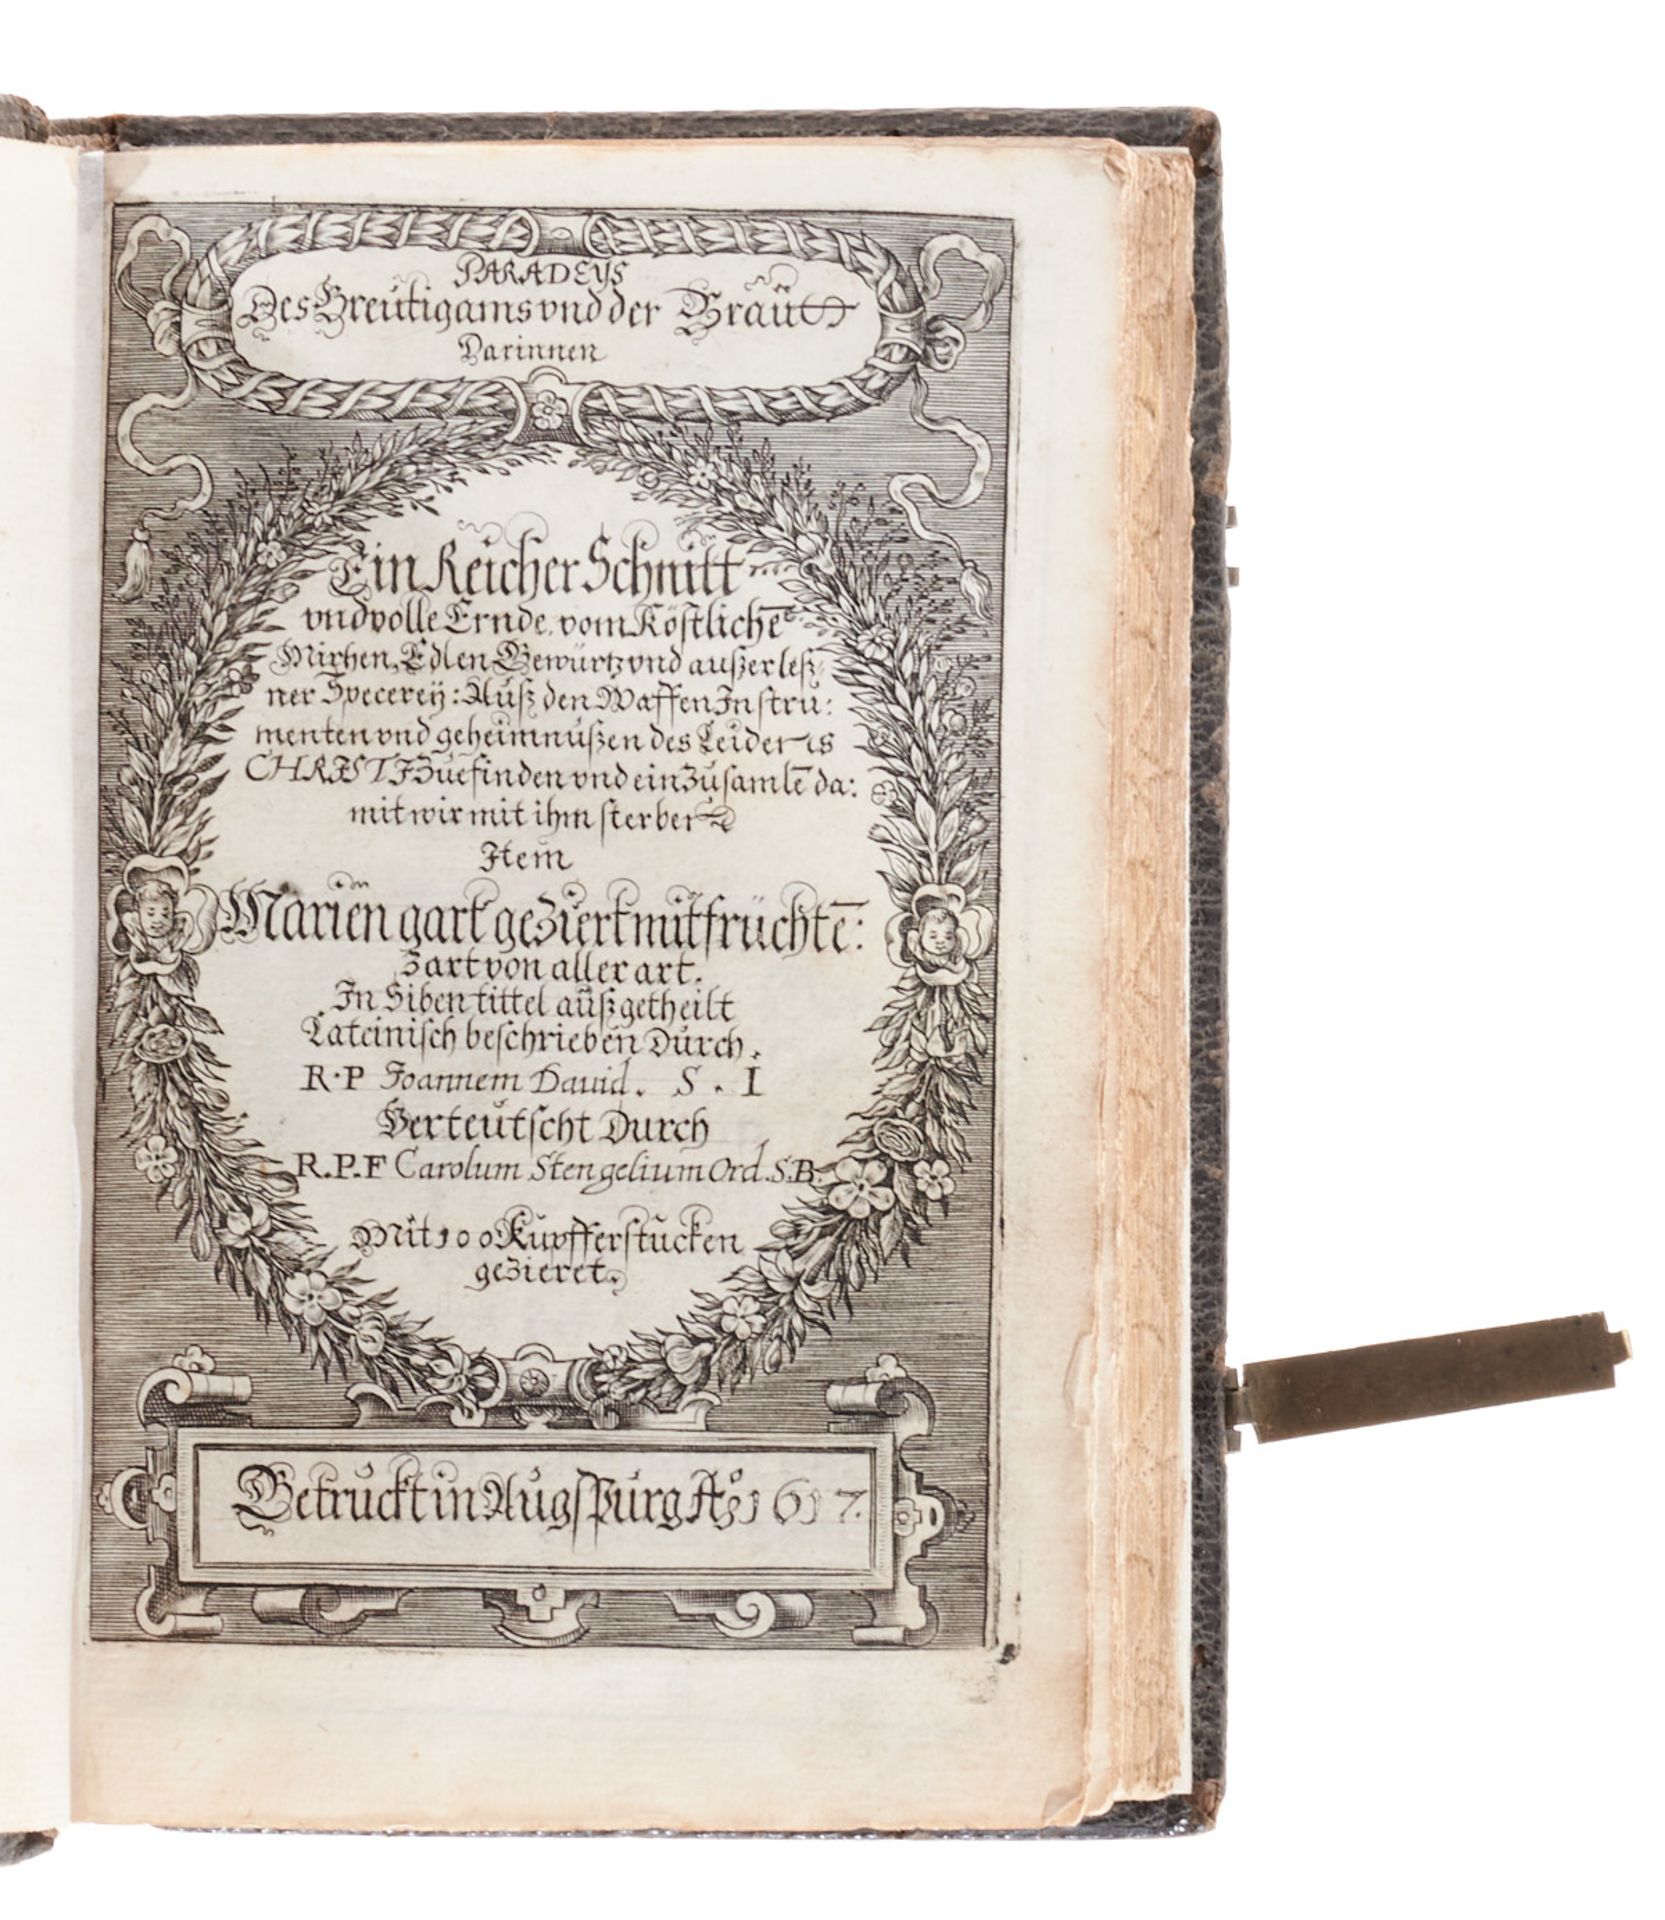 PARADEYS
Des Breütigams vnd der Bräutt
Darinnen
Ein Reicher Schnitt
vnd volle Ernde, vom Köstlichē
Mirhen, Edlen Gewürtz vnd außerleß,
ner Specereÿ: Auß den Waffen Instru:
menten vnd geheimnußen des Leidens
CHRISTI Zue finden vnd ein Zu samlē da:
mit wir mit ihm sterben
Item
Marien gart geziert mit früchtē:
zart von aller art.
In Siben tittel außgetheilt
Lateinisch beschrieben Durch.
R.P Joannem Dauid. S. I
Verteutscht Durch
R.P.F Carolum Stengelium Ord.S.B.
Mit 100 Kupfferstucken
gezieret.
Getruckt in Augspurg Aº 1617.